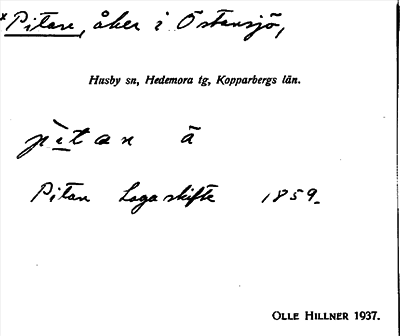 *Pitan, åker i Östansjö,
Husby sn, Hedemora tg, Kopparbergs län.
pìtan ä
Pitan Laga skifte 1859.
OLLE HILLNER 1937.